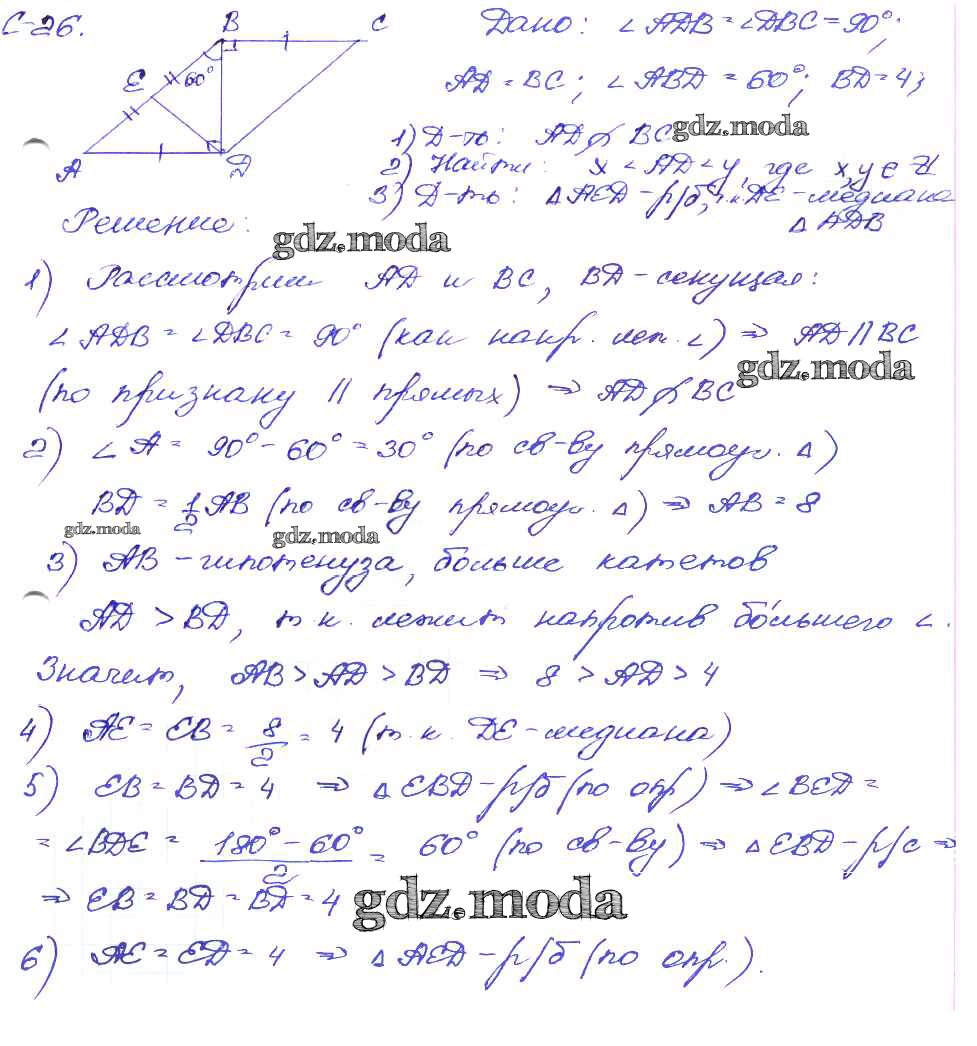 С-26.
B
C
E
60°
A
D
Дано: ∠ADB = ∠DBC = 90°;
AD = BC; ∠ABD = 60°; BD = 4;
1) Д-ть: AD ∦ BC
gdz.moda
2) Найти: x < AD < y, где x, y ∈ Z
3) Д-ть: △AED - р/б, DE - медиана
△ADB
Решение:
gdz.moda
1) Рассмотрим AD и BC, BD - секущая:
∠ADB = ∠DBC = 90° (как накр. леж. ∠) ⇒ AD || BC
gdz.moda
(по признаку || прямых) ⇒ AD ∦ BC
2) ∠A = 90° - 60° = 30° (по св-ву прямоуг. △)
BD = 1/2 AB (по св-ву прямоуг. △) ⇒ AB = 8
gdz.moda
gdz.moda
3) AB - гипотенуза, больше катетов
AD > BD, т.к. лежит напротив большего ∠.
Значит, AB > AD > BD ⇒ 8 > AD > 4
4) AE = EB = 8/2 = 4 (т.к. DE - медиана)
5) EB = BD = 4 ⇒ △EBD - р/б (по опр) ⇒ ∠BED =
= ∠BDE = (180° - 60°)/2 = 60° (по св-ву) ⇒ △EBD - р/с ⇒
⇒ EB = BD = BD = 4
gdz.moda
6) AE = ED = 4 ⇒ △AED - р/б (по опр.).